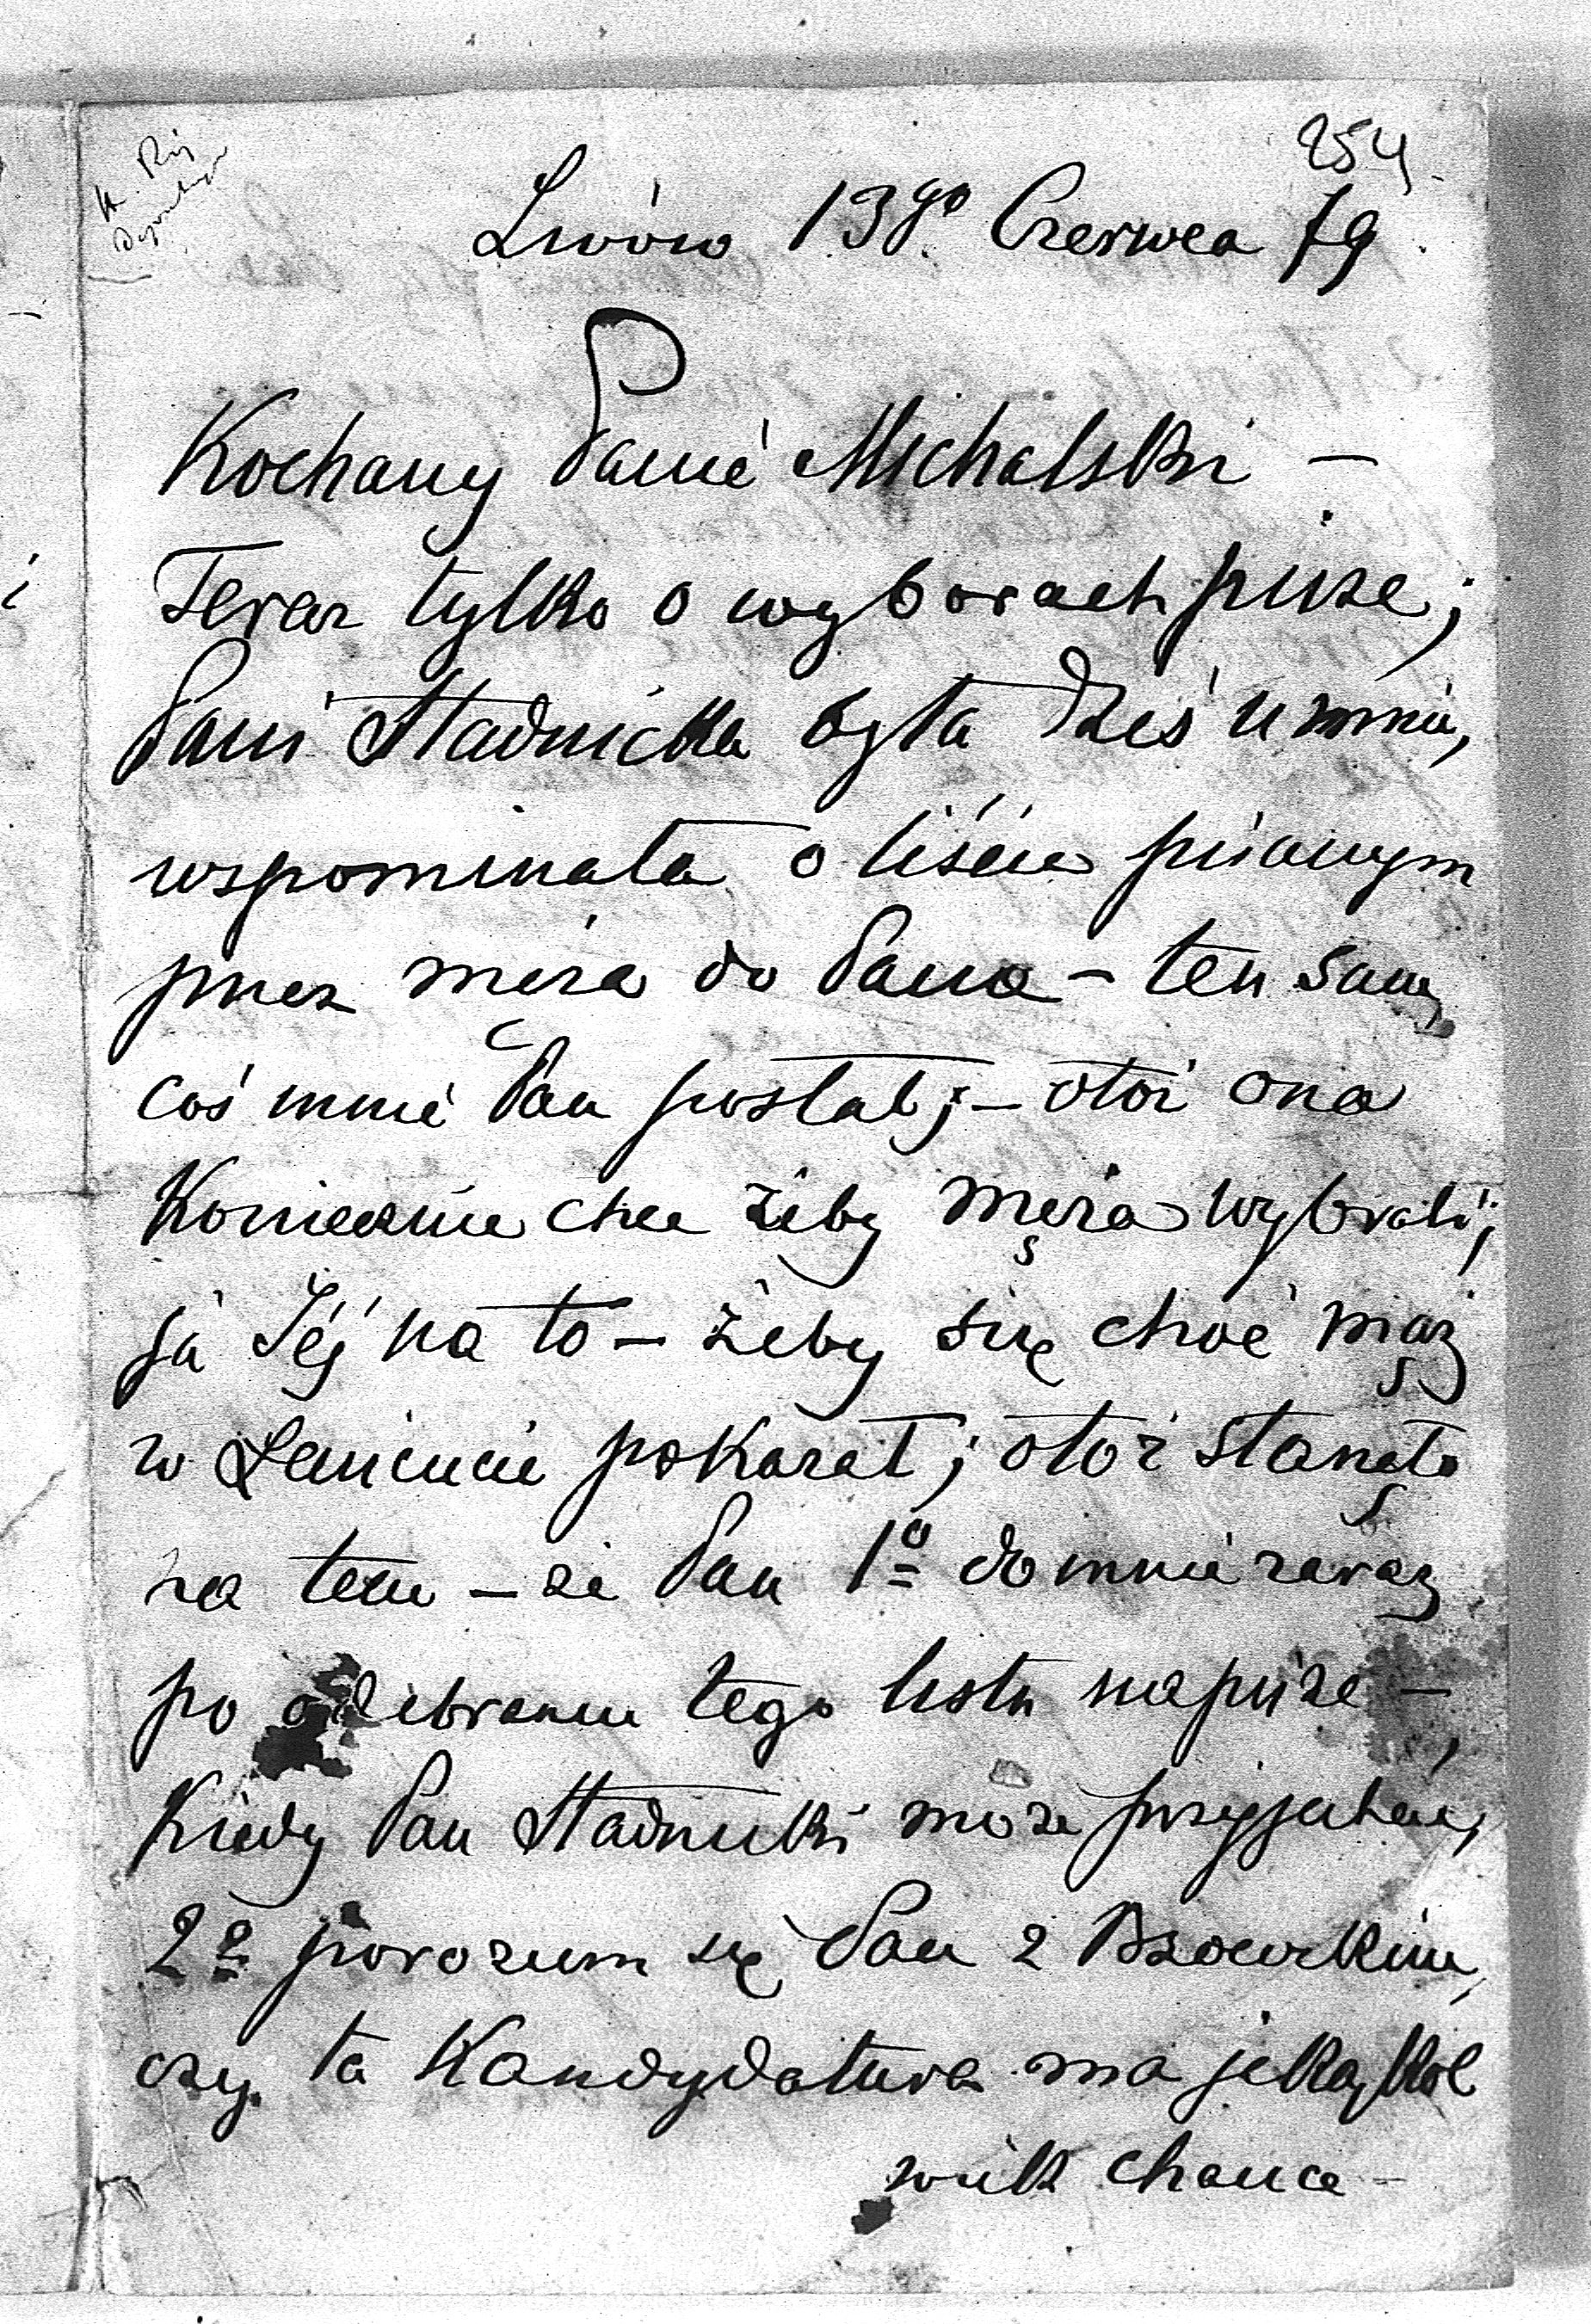 254
Lwów 13go Czerwca 79
Kochany Panie Michalski –
Teraz tylko o wyborach piszę;
Pani Stadnicka była dziś u mnie,
wspominała o liście pisanym
przez męża do Pana – ten sam,
coś mnie Pan posłał; – otóż ona
Koniecznie chce żeby męża wybrali;
ja Jéj na to – żeby się choć mąż
w Łańcucie pokazał; otóż stanęło
na tem – że Pan 1o do mnie zaraz
po odebraniu tego listu napisze –,
Kiedy Pan Stadnicki może przyjechać,
2o porozum się Pan z
czy ta Kandydatura ma jakąkol
wiek chance –